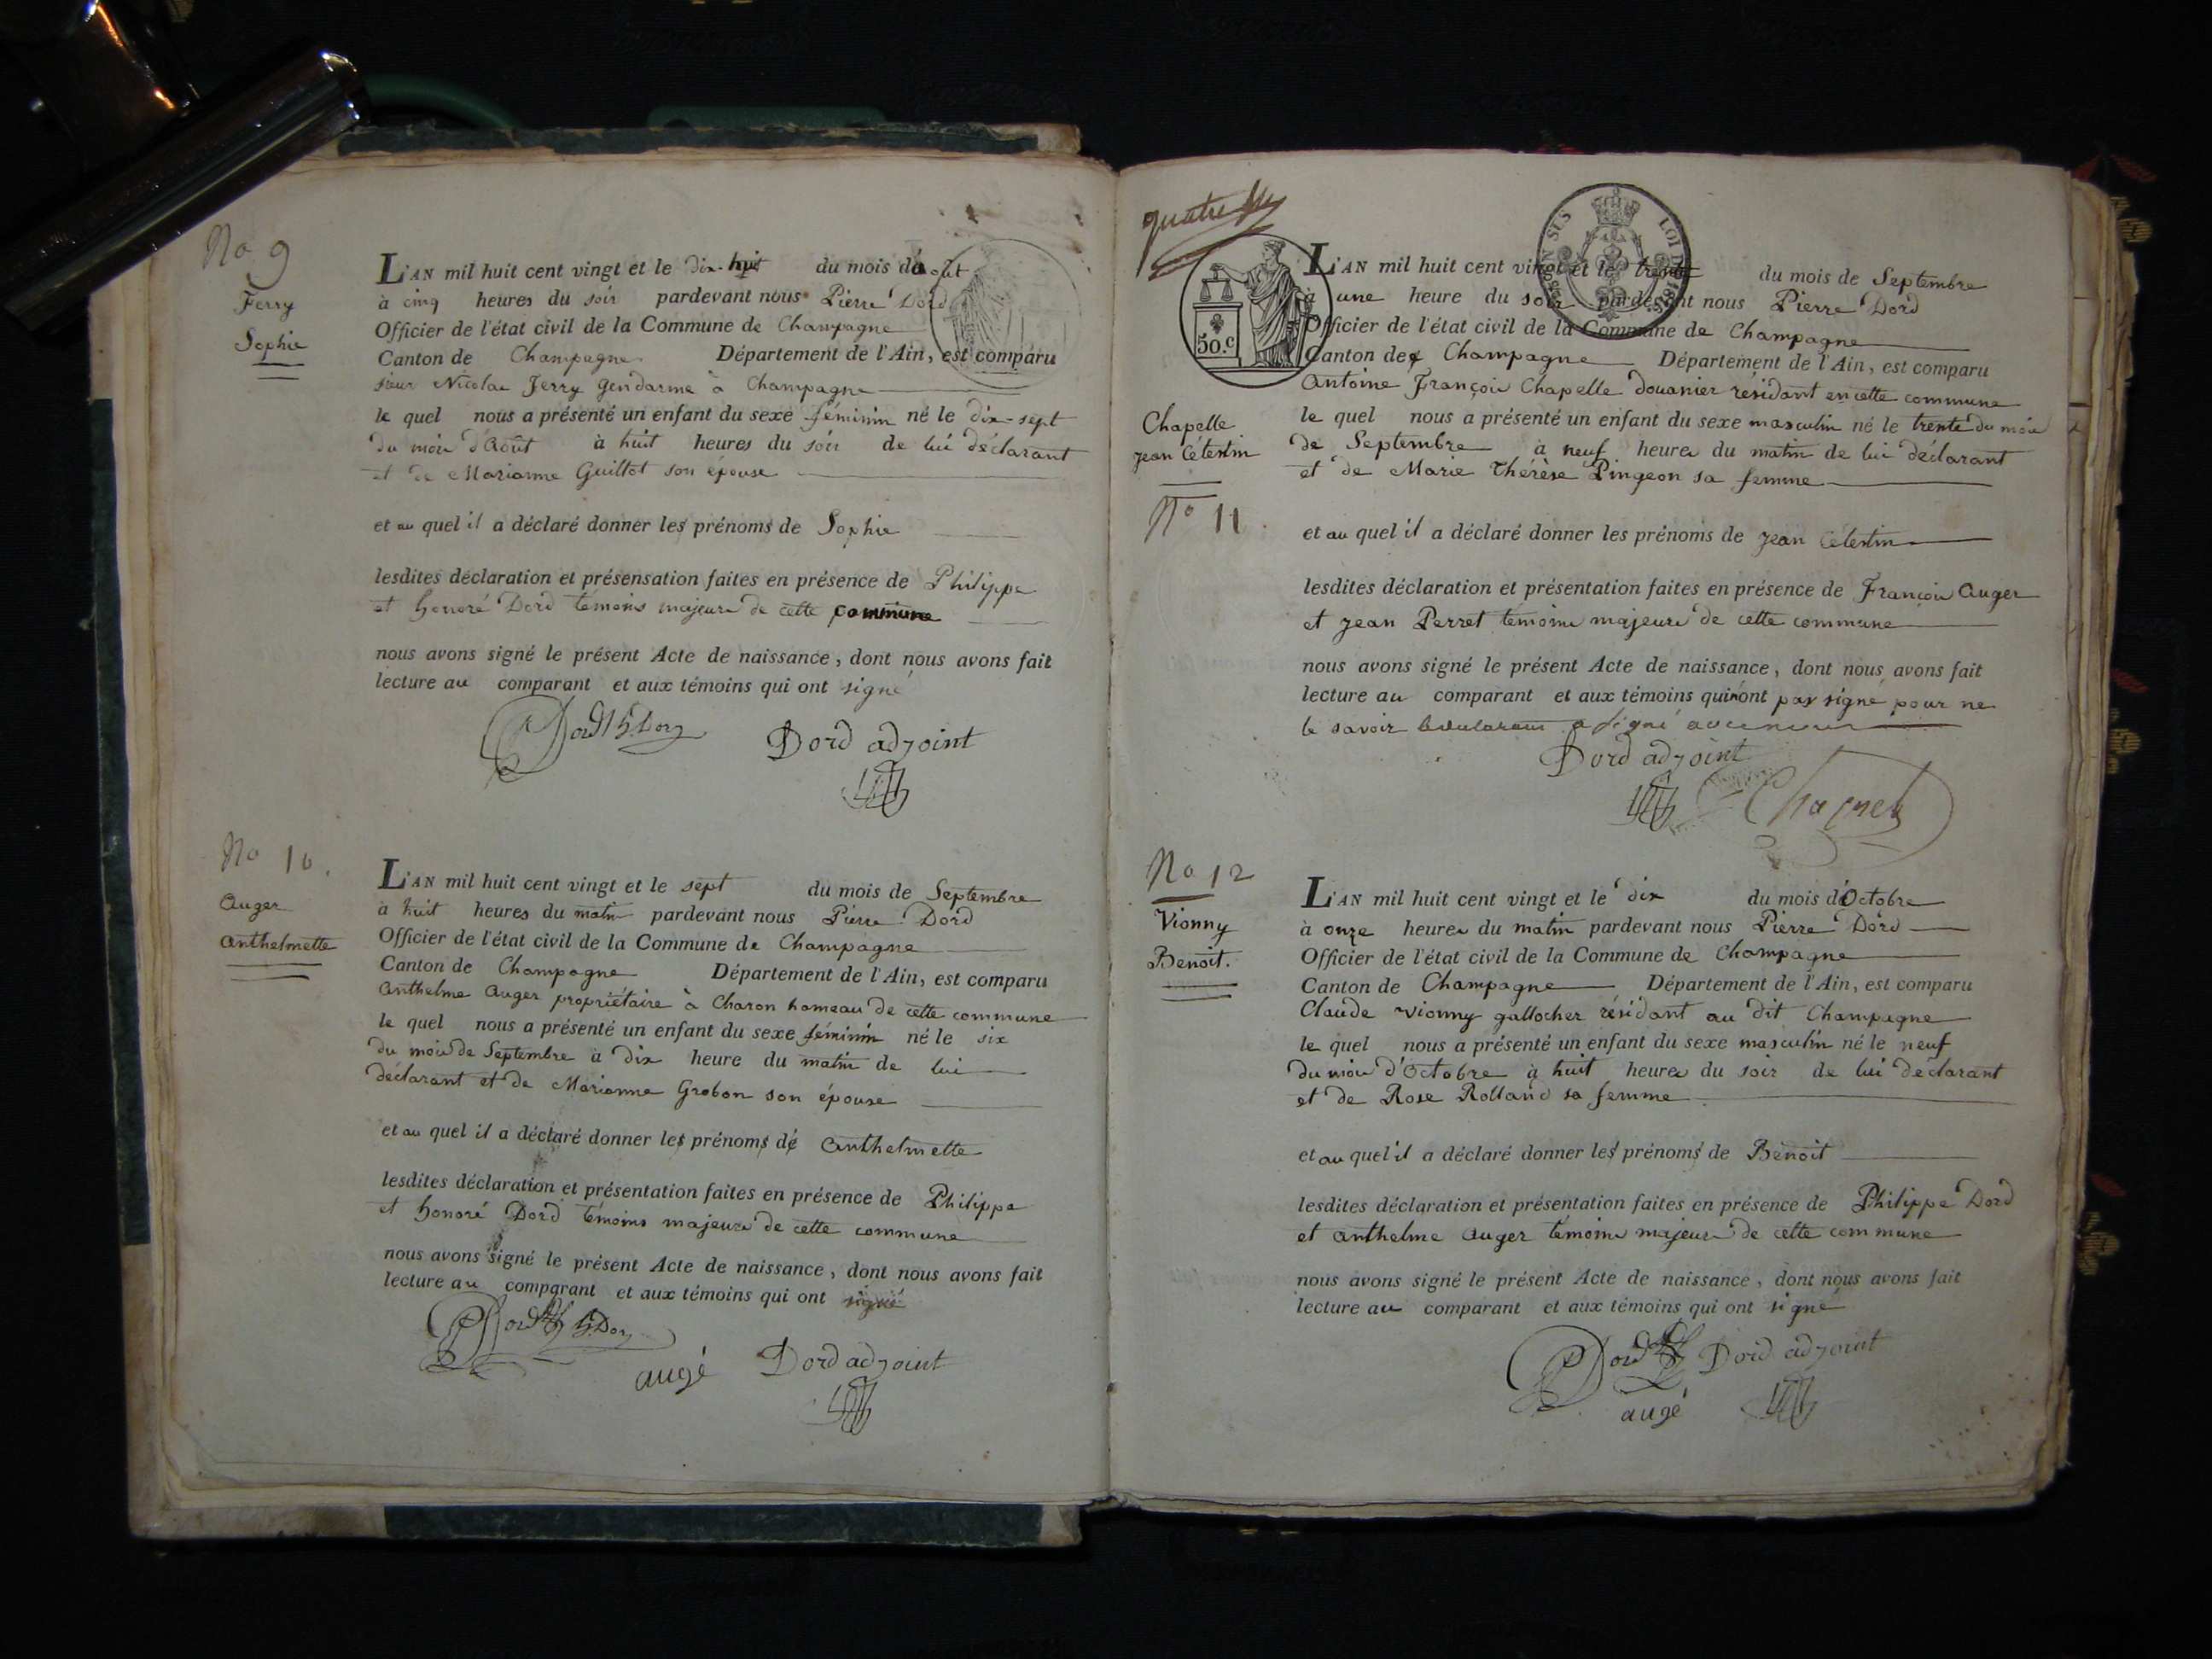 No 9
Ferry
Sophie
L'AN mil huit cent vingt et le dix-huit du mois d'août
à cinq heures du soir pardevant nous Pierre Dord
Officier de l'état civil de la Commune de Champagne
Canton de Champagne Département de l'Ain, est comparu
sieur Nicolas Ferry Gendarme à Champagne
le quel nous a présenté un enfant du sexe féminin né le dix-sept
du mois d'Août à huit heures du soir de lui déclarant
et de Marianne Guillot son épouse
et au quel il a déclaré donner les prénoms de Sophie
lesdites déclaration et présensation faites en présence de Philippe
et honoré Dord témoins majeurs de cette commune
nous avons signé le présent Acte de naissance, dont nous avons fait
lecture au comparant et aux témoins qui ont signé
Dord h. Dord Dord adjoint
No 10.
Auger
Anthelmette
L'AN mil huit cent vingt et le sept du mois de Septembre
à huit heures du matin pardevant nous Pierre Dord
Officier de l'état civil de la Commune de Champagne
Canton de Champagne Département de l'Ain, est comparu
Anthelme Auger propriétaire à Charon hameau de cette commune
le quel nous a présenté un enfant du sexe féminin né le six
du mois de Septembre à dix heure du matin de lui
déclarant et de Marianne Grobon son épouse
et au quel il a déclaré donner les prénoms de Anthelmette
lesdites déclaration et présentation faites en présence de Philippe
et honoré Dord témoins majeurs de cette commune
nous avons signé le présent Acte de naissance, dont nous avons fait
lecture au comparant et aux témoins qui ont signé
Dord h. Dord
augé Dord adjoint
quatre
50.c
LOI DE 1816
Chapelle
Jean Célestin
No 11
L'AN mil huit cent vingt et le trente du mois de Septembre
à une heure du soir pardevant nous Pierre Dord
Officier de l'état civil de la Commune de Champagne
Canton de Champagne Département de l'Ain, est comparu
Antoine François Chapelle Douanier résidant en cette commune
le quel nous a présenté un enfant du sexe masculin né le trente du mois
de Septembre à neuf heures du matin de lui déclarant
et de Marie Thérèse Pingeon sa femme
et au quel il a déclaré donner les prénoms de Jean Célestin
lesdites déclaration et présentation faites en présence de François Auger
et Jean Perret témoins majeurs de cette commune
nous avons signé le présent Acte de naissance, dont nous avons fait
lecture au comparant et aux témoins qui n'ont pas signé pour ne
le savoir a signé avec nous
Dord adjoint
No 12
Vionny
Benoît.
L'AN mil huit cent vingt et le dix du mois d'Octobre
à onze heures du matin pardevant nous Pierre Dord
Officier de l'état civil de la Commune de Champagne
Canton de Champagne Département de l'Ain, est comparu
Claude Vionny gallocher résidant au dit Champagne
le quel nous a présenté un enfant du sexe masculin né le neuf
du mois d'Octobre à huit heures du soir de lui déclarant
et de Rose Rolland sa femme
et au quel il a déclaré donner les prénoms de Benoît
lesdites déclaration et présentation faites en présence de Philippe Dord
et Anthelme Auger témoins majeurs de cette commune
nous avons signé le présent Acte de naissance, dont nous avons fait
lecture au comparant et aux témoins qui ont signé
Dord Dord adjoint
augé